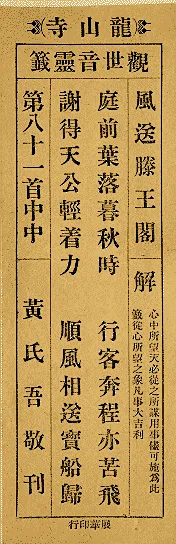 龍山寺
觀世音靈籤
風送滕王閣
解
心中所望天必從之所謀用事儘可施為此
籤從心所望之象凡事大吉利
庭前葉落暮秋時 行客奔程亦苦飛
謝得天公輕着力 順風相送寶船歸
第八十一首中中
黃氏吾敬刊
展華印行